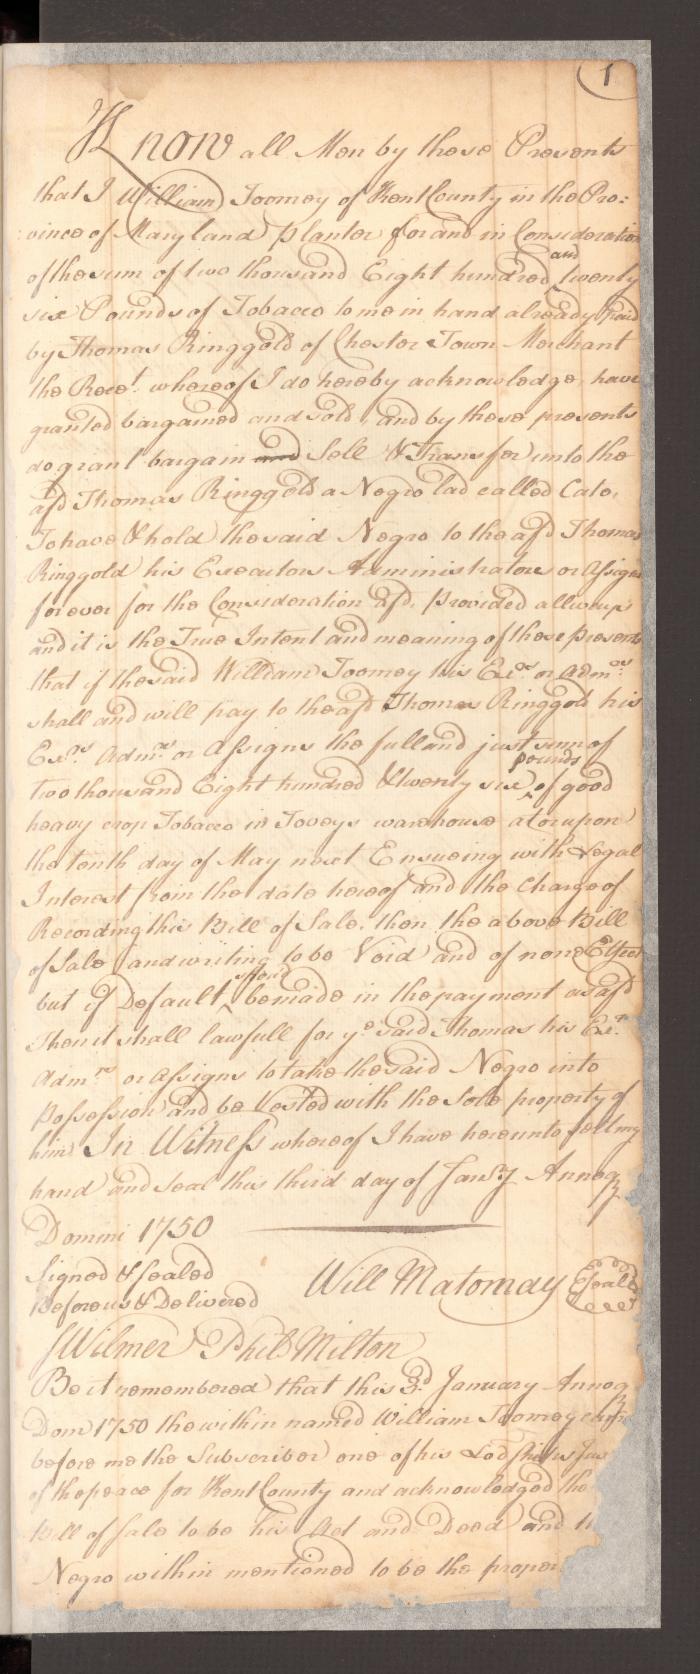 1
Know all Men by these Presents
that I William Toomey of Kent County in the Pro:
vince of Maryland planter for and in Consideration
and
of the sum of two thousand Eight hundred twenty
six Pounds of Tobacco to me in hand already paid
by Thomas Ringgold of Chester Town Merchant
the Rect. whereof I do hereby acknowledge, have
granted bargained and sold, and by these presents
do grant bargain and Sell & Transfer unto the
afsd Thomas Ringgold a Negro lad called Cato,
To have & hold the said Negro to the afsd Thomas
Ringgold his Executors Administrators or Assigns
forever for the Consideration afsd, provided allways
and it is the True Intent and meaning of these presents
that if the said William Toomey his Exrs or Admrs
shall and will pay to the afsd Thomas Ringgold his
Exrs. Admrs or Assigns the full and just sum of
pounds
two thousand Eight hundred & twenty six of good
heavy crop Tobacco in Toveys warehouse at or upon
the tenth day of May next Ensueing with Legal
Interest from the date hereof and the Charge of
Recording this Bill of Sale, then the above Bill
of Sale and writing to be Void and of none Effect
but if Default be made in the payment as afsd
Then it shall lawfull for ye said Thomas his Exrs
Admrs or Assigns to take the said Negro into
Possession and be Vested with the Sole property of
him In Witness whereof I have hereunto set my
hand and seal this third day of Janry Annoq
Domini 1750
Signed & Sealed Will Matomay Seal
Before us & Delivered
Wilmer Phil Milton
Be it remembered that this 3d January Annoq
Dom 1750 the within named William Toomey
before me the Subscriber one of his Lodships
of the peace for Kent County and acknowledged the
Bill of sale to be his Act and Deed and
Negro within mentioned to be the proper